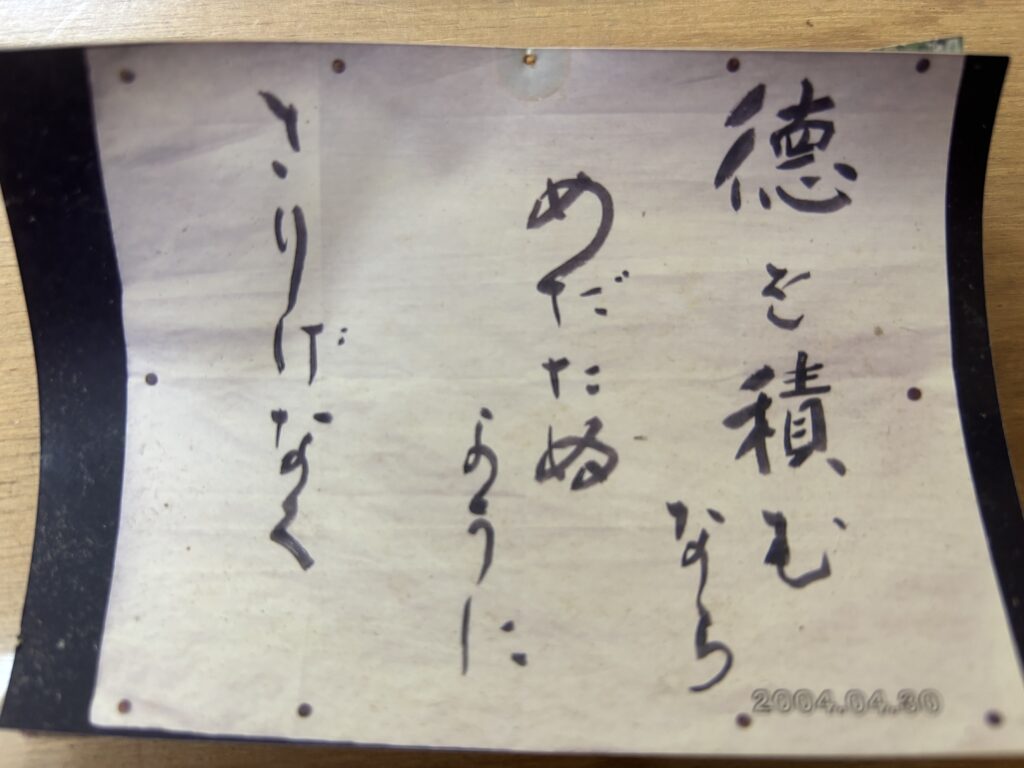 徳を積む
なら
めだたぬ
ように
さりげなく
2004.04.30